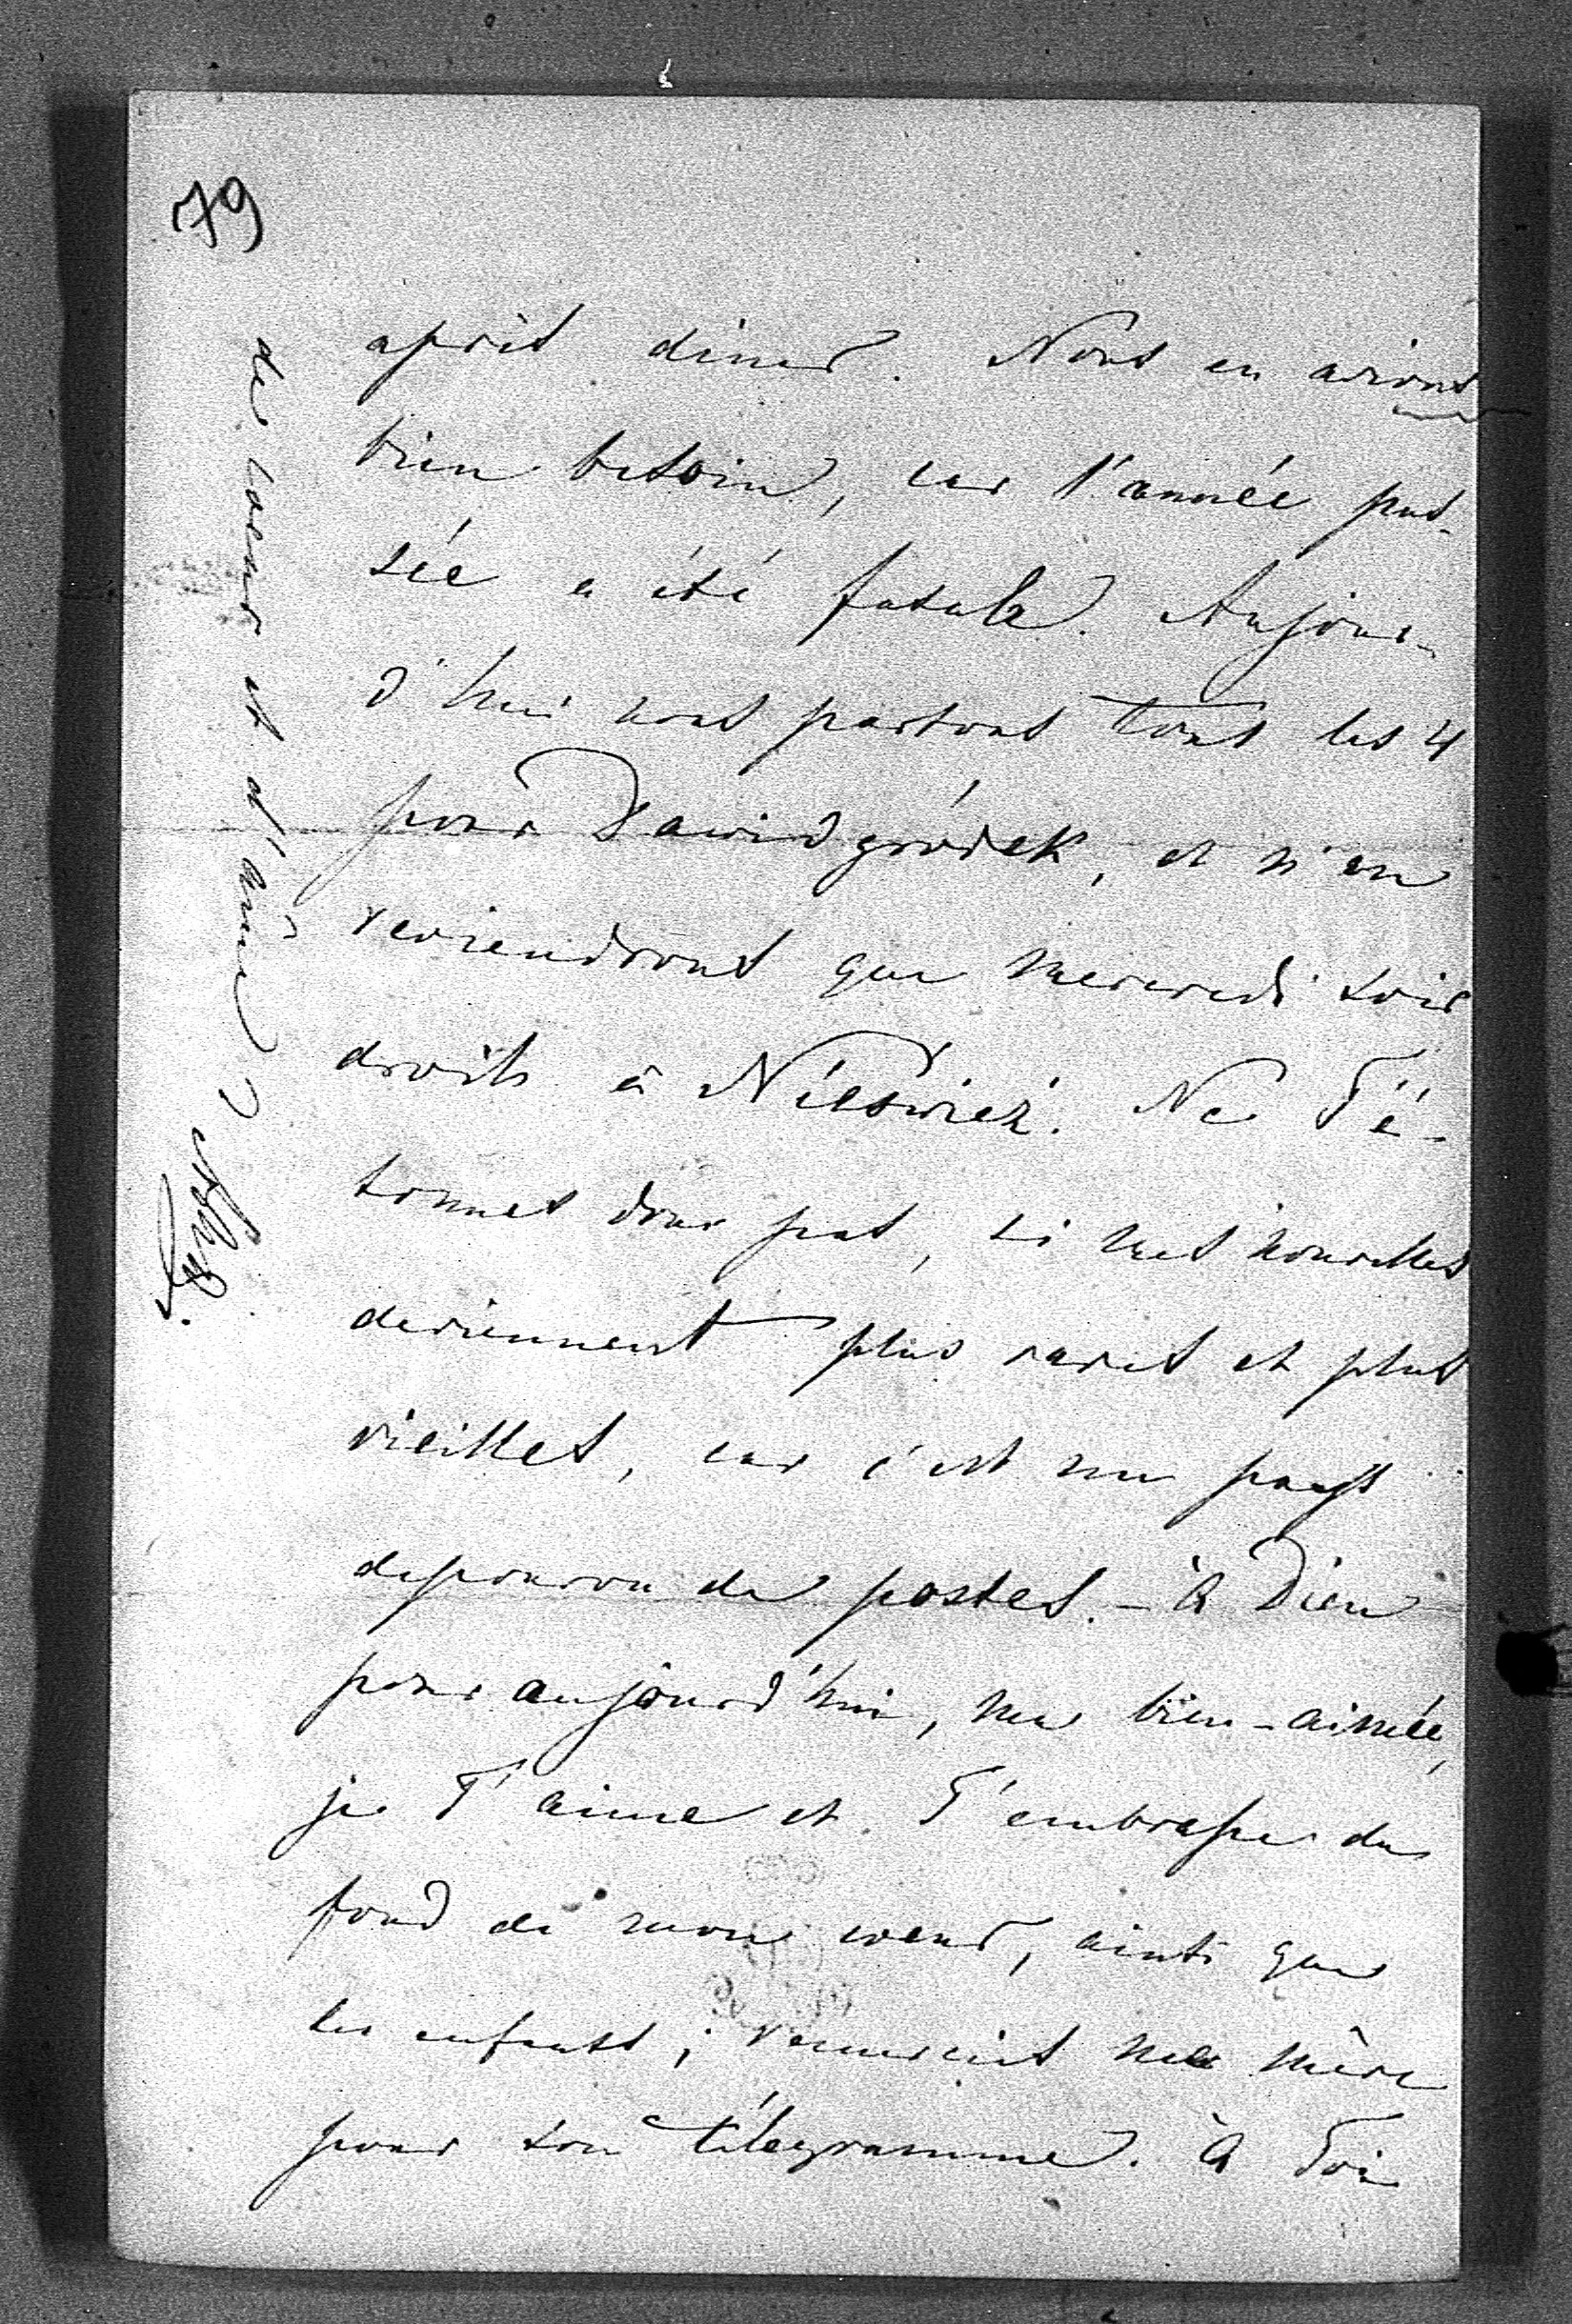 79
après diner. Nous en avions
bien besoin, car l'année pas-
sée a été fatale. Aujour-
d'hui nous partons tous les 4
pour Dawidgródek, et n'en
reviendrons que mercredi soir
droit à Nieśwież. Ne T'é-
tonnes donc pas, si mes nouvelles
deviennent plus rares et plus
vieilles, car c'est un pays
depourvu de postes. - à Dieu
pour aujourd'hui, ma bien-aimée,
je T'aime et T'embrasse du
fond de mon coeur, ainsi que
les enfants; remercies ma mère
pour son télegramme. à Toi
de coeur et d'âme